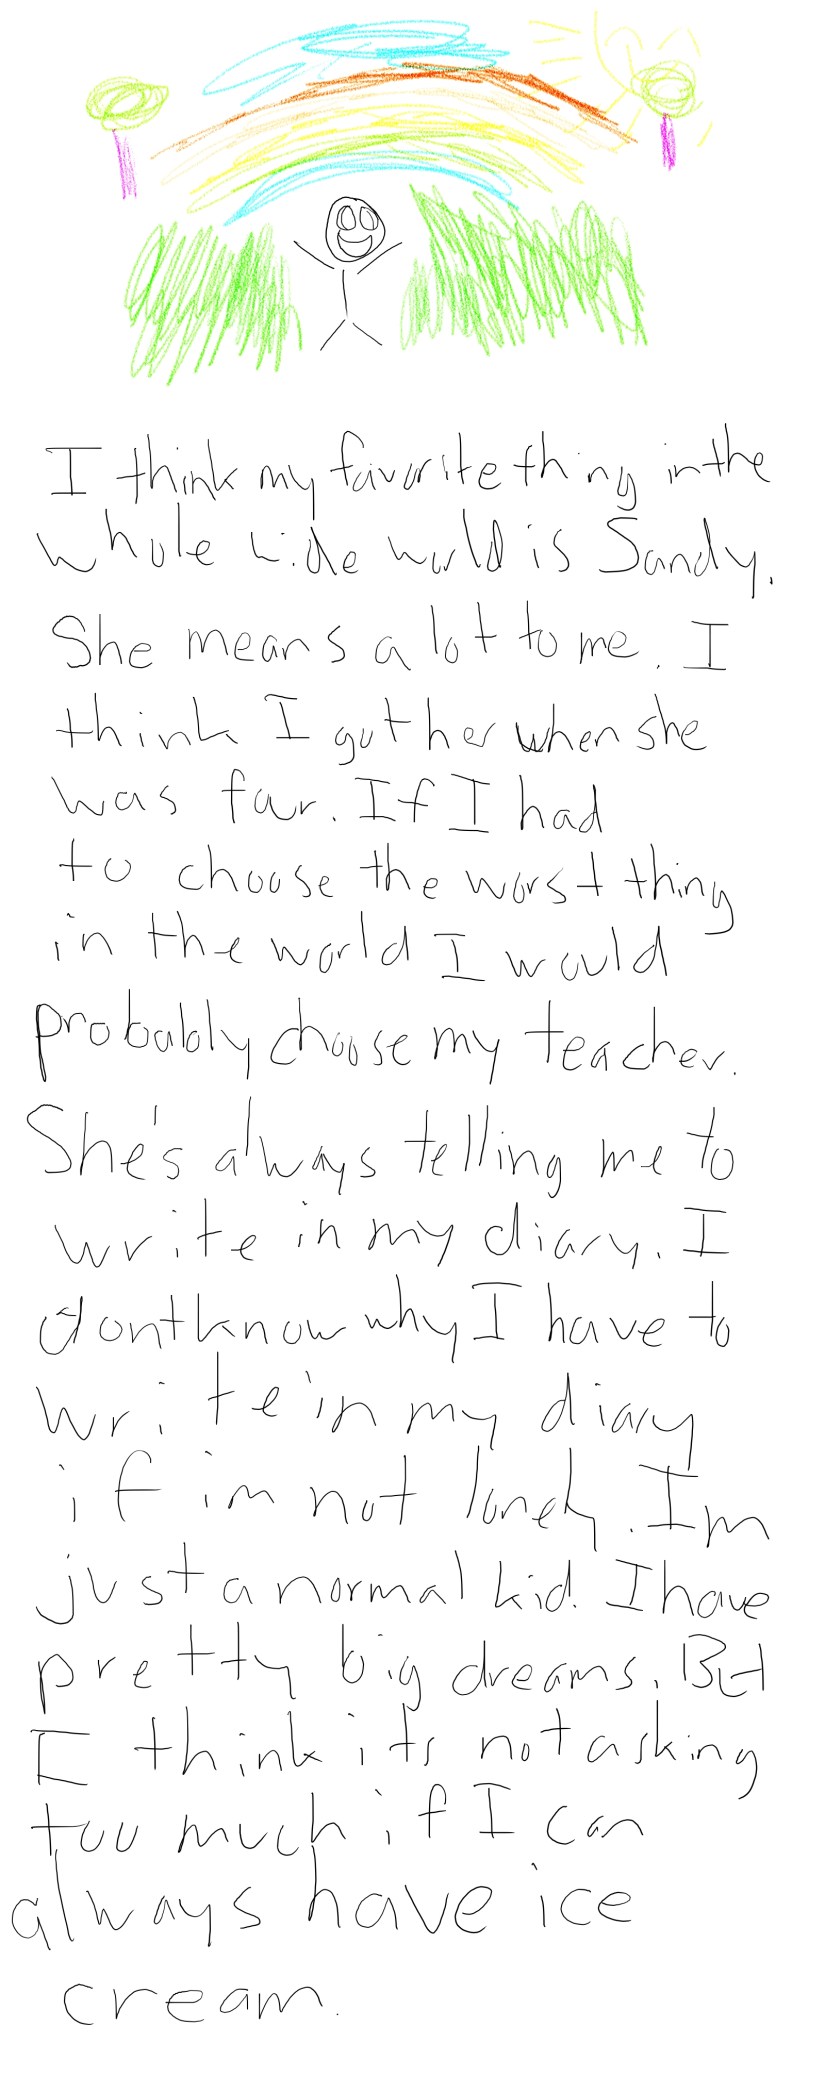 I think my favorite thing in the
whole wide world is Sandy.
She means a lot to me. I
think I got her when she
was four. If I had
to choose the worst thing
in the world I would
probably choose my teacher.
She's always telling me to
write in my diary. I
dont know why I have to
write in my diary
if im not lonely. Im
just a normal kid. I have
pretty big dreams. But
I think its not asking
too much if I can
always have ice
cream.